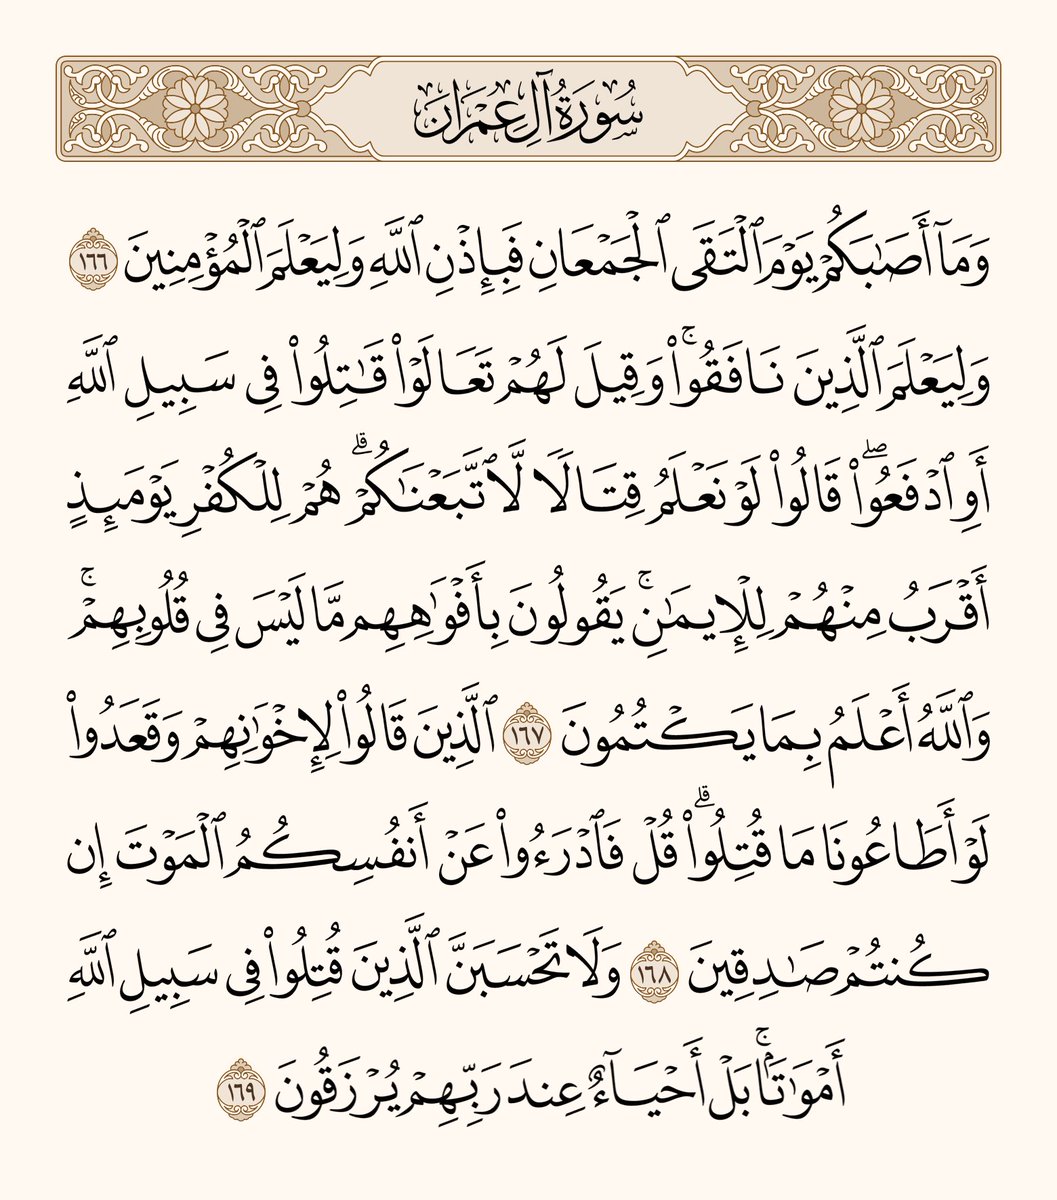 سُورَةُ آلِ عِمْرَانَ
وَمَآ أَصَٰبَكُمْ يَوْمَ ٱلْتَقَى ٱلْجَمْعَانِ فَبِإِذْنِ ٱللَّهِ وَلِيَعْلَمَ ٱلْمُؤْمِنِينَ ١٦٦
وَلِيَعْلَمَ ٱلَّذِينَ نَافَقُوا۟ ۚ وَقِيلَ لَهُمْ تَعَالَوْا۟ قَٰتِلُوا۟ فِى سَبِيلِ ٱللَّهِ
أَوِ ٱدْفَعُوا۟ ۖ قَالُوا۟ لَوْ نَعْلَمُ قِتَالًا لَّٱتَّبَعْنَٰكُمْ ۗ هُمْ لِلْكُفْرِ يَوْمَئِذٍ
أَقْرَبُ مِنْهُمْ لِلْإِيمَٰنِ ۚ يَقُولُونَ بِأَفْوَٰهِهِم مَّا لَيْسَ فِى قُلُوبِهِمْ ۚ
وَٱللَّهُ أَعْلَمُ بِمَا يَكْتُمُونَ ١٦٧ ٱلَّذِينَ قَالُوا۟ لِإِخْوَٰنِهِمْ وَقَعَدُوا۟
لَوْ أَطَاعُونَا مَا قُتِلُوا۟ ۗ قُلْ فَٱدْرَءُوا۟ عَنْ أَنفُسِكُمُ ٱلْمَوْتَ إِن
كُنتُمْ صَٰدِقِينَ ١٦٨ وَلَا تَحْسَبَنَّ ٱلَّذِينَ قُتِلُوا۟ فِى سَبِيلِ ٱللَّهِ
أَمْوَٰتًۢا ۚ بَلْ أَحْيَآءٌ عِندَ رَبِّهِمْ يُرْزَقُونَ ١٦٩